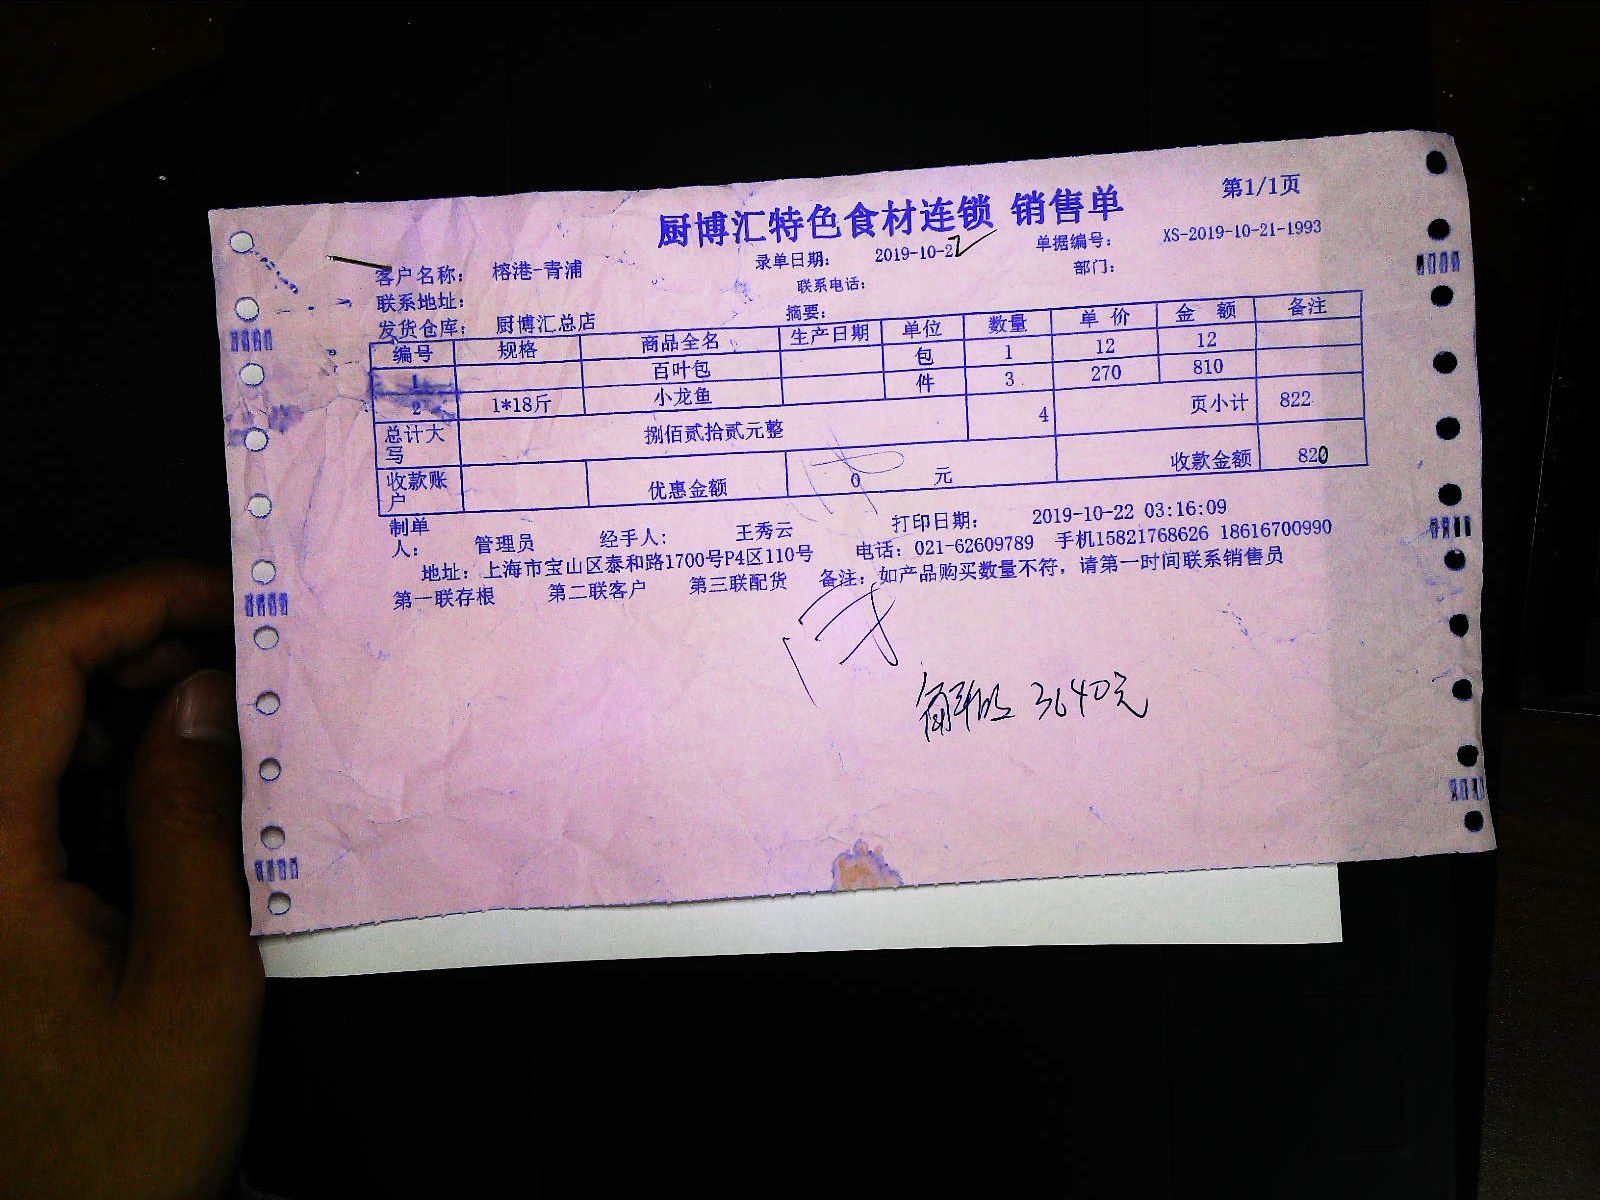 厨博汇特色食材连锁 销售单 第1/1页
客户名称: 榕港-青浦 录单日期: 2019-10-22 单据编号: XS-2019-10-21-1993
联系地址: 联系电话: 部门:
发货仓库: 厨博汇总店 摘要:
编号 规格 商品全名 生产日期 单位 数量 单价 金额 备注
1 百叶包 包 1 12 12
2 1*18斤 小龙鱼 件 3 270 810
总计大写 捌佰贰拾贰元整 4 页小计 822
收款账户 优惠金额 0 元 收款金额 820
制单人: 管理员 经手人: 王秀云 打印日期: 2019-10-22 03:16:09
地址: 上海市宝山区泰和路1700号P4区110号 电话: 021-62609789 手机15821768626 18616700990
第一联存根 第二联客户 第三联配货 备注: 如产品购买数量不符, 请第一时间联系销售员
3640元